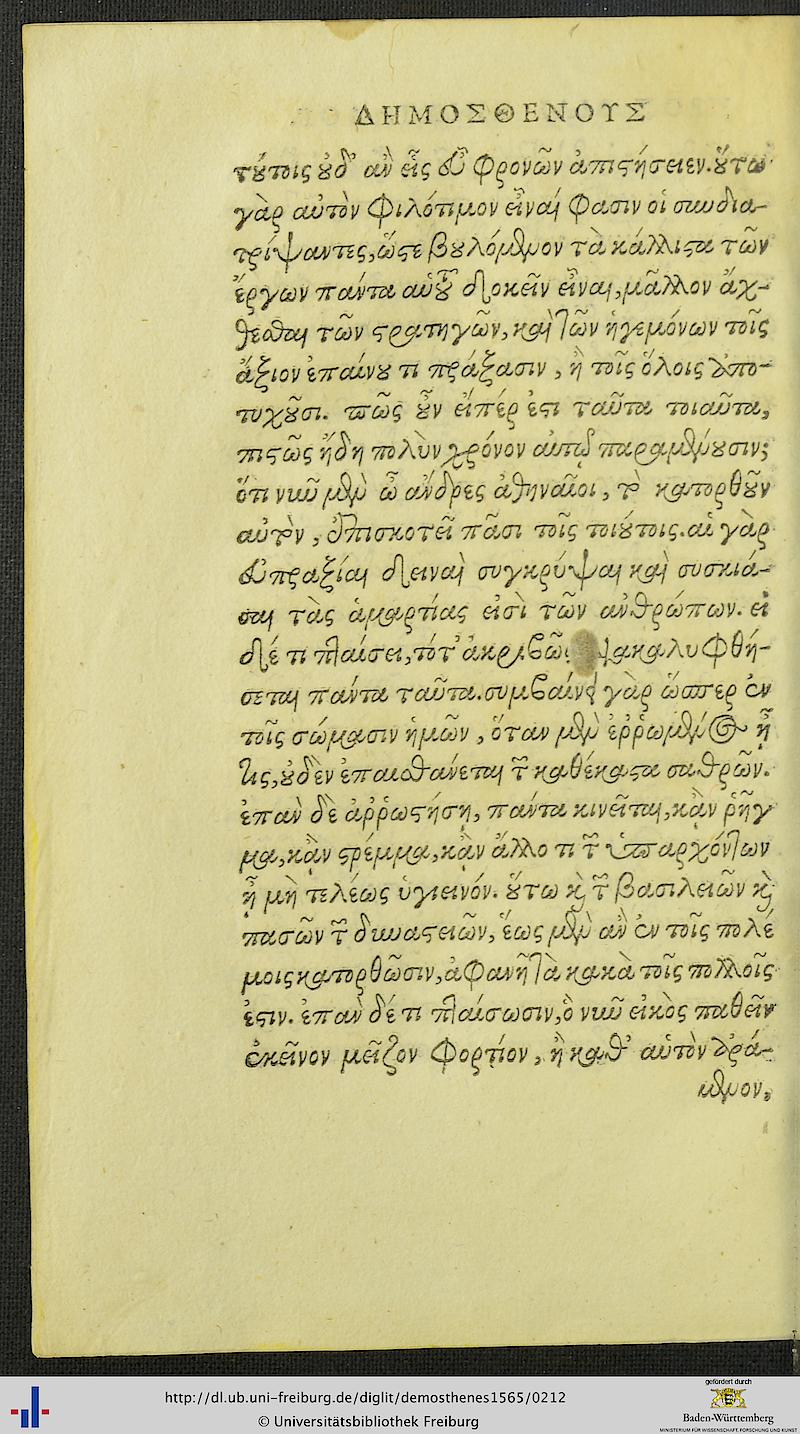 ΔΗΜΟΣΘΕΝΟΥΣ
τούτοις οὐδ' ἂν εἷς εὖ φρονῶν ἀπιστήσειεν. οὕτω
γὰρ αὐτὸν φιλότιμον εἶναί φασιν οἱ συνδια-
τρίψαντες, ὥστε βουλόμενον τὰ κάλλιστα τῶν
ἔργων πάντα αὑτοῦ δοκεῖν εἶναι, μᾶλλον ἄχ-
θεσθαι τῶν στρατηγῶν, καὶ τῶν ἡγεμόνων τοῖς
ἄξιον ἐπαίνου τι πράξασιν, ἢ τοῖς ὅλοις ἀπο-
τυχοῦσι. πῶς οὖν εἴπέρ ἐστι ταῦτα τοιαῦτα,
πιστῶς ἤδη πολὺν χρόνον αὐτῷ παραμένουσιν;
ὅτι νῦν μὲν ὦ ἄνδρες ἀθηναῖοι, τὸ κατορθοῦν
αὐτὸν, ἐπισκοτεῖ πᾶσι τοῖς τοιούτοις. αἱ γὰρ
εὐπραξίαι δειναὶ συγκρύψαι καὶ συσκιά-
σαι τὰς ἁμαρτίας εἰσὶ τῶν ἀνθρώπων. εἰ
δέ τι πταίσει, τότ' ἀκριβῶς διακαλυφθή-
σεται πάντα ταῦτα. συμβαίνει γὰρ ὥσπερ ἐν
τοῖς σώμασιν ἡμῶν, ὅταν μὲν ἐρρωμένος ᾖ
τις, οὐδὲν ἐπαισθάνεται τῶν καθέκαστα σαθρῶν.
ἐπὰν δὲ ἀῤῥωστήσῃ, πάντα κινεῖται, κἂν ῥῆγ
μα, κἂν στρέμμα, κἂν ἄλλο τι τῶν ὑπαρχόντων
ᾖ μὴ τελέως ὑγιεινόν. οὕτω καὶ τῶν βασιλειῶν καὶ
πασῶν τῶν δυναστειῶν, ἕως μὲν ἂν ἐν τοῖς πολέ
μοις κατορθῶσιν, ἀφανῆ τὰ κακὰ τοῖς πολλοῖς
ἐστιν. ἐπὰν δέ τι πταίσωσιν, ὃ νῦν εἰκὸς παθεῖν
ἐκεῖνον μεῖζον φορτίον, ἢ καθ' αὑτὸν ἀρά-
μενον,
http://dl.ub.uni-freiburg.de/diglit/demosthenes1565/0212
© Universitätsbibliothek Freiburg
gefördert durch
Baden-Württemberg
MINISTERIUM FÜR WISSENSCHAFT, FORSCHUNG UND KUNST